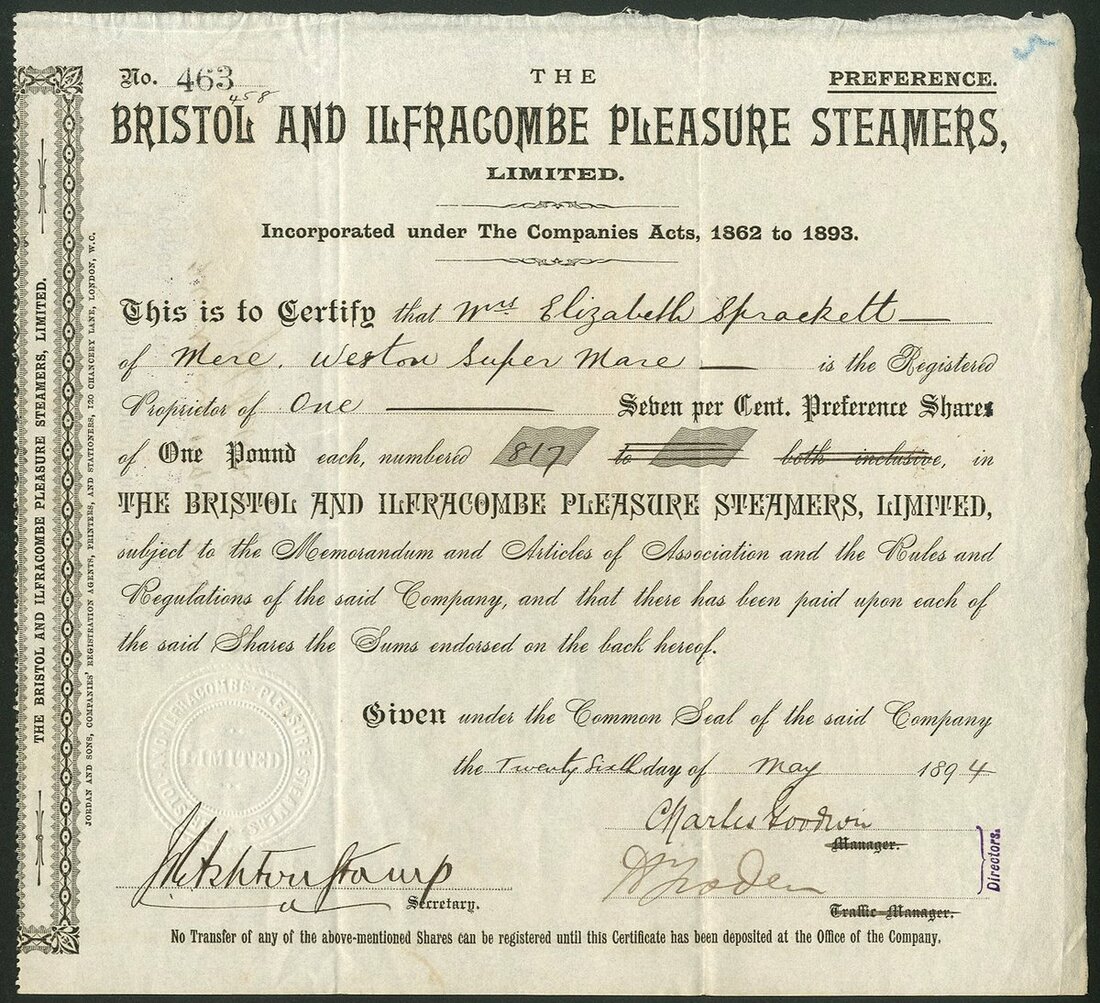 No. 463
458
THE
PREFERENCE.
BRISTOL AND ILFRACOMBE PLEASURE STEAMERS,
LIMITED.
Incorporated under The Companies Acts, 1862 to 1893.
This is to Certify that Mrs Elizabeth Sprackett
of Mere. Weston Super Mare is the Registered
Proprietor of One Seven per Cent. Preference Shares
of One Pound each, numbered 817 to both inclusive, in
THE BRISTOL AND ILFRACOMBE PLEASURE STEAMERS, LIMITED,
subject to the Memorandum and Articles of Association and the Rules and
Regulations of the said Company, and that there has been paid upon each of
the said Shares the Sums endorsed on the back hereof.
Given under the Common Seal of the said Company
the Twenty Sixth day of May 1894
Charles Goodwin
Manager.
Directors.
Secretary.
Traffic Manager.
No Transfer of any of the above-mentioned Shares can be registered until this Certificate has been deposited at the Office of the Company.
THE BRISTOL AND ILFRACOMBE PLEASURE STEAMERS, LIMITED.
JORDAN AND SONS, COMPANIES' REGISTRATION AGENTS, PRINTERS, AND STATIONERS, 120 CHANCERY LANE, LONDON, W.C.
BRISTOL AND ILFRACOMBE PLEASURE STEAMERS
LIMITED